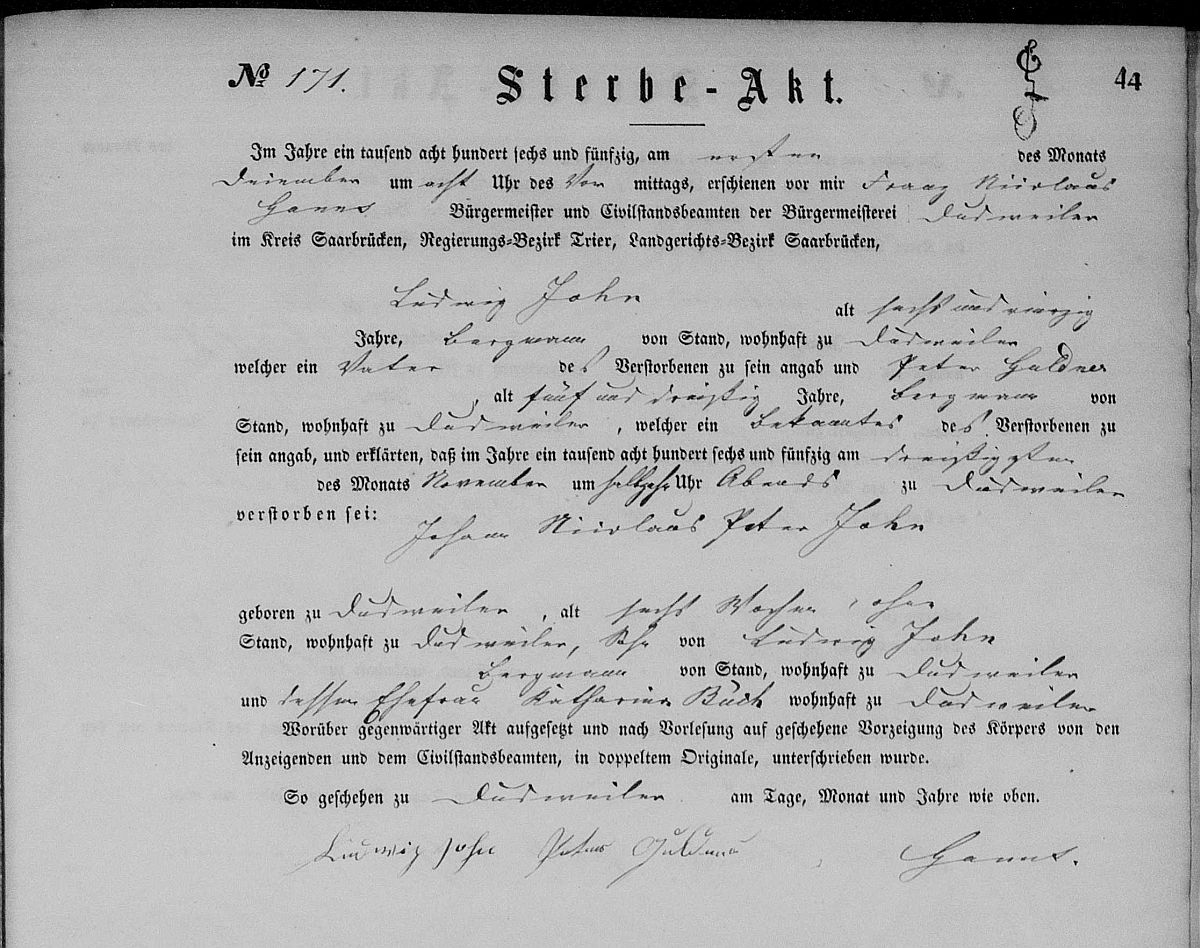 № 171. Sterbe-Akt. 44
Im Jahre ein tausend acht hundert sechs und fünfzig, am ersten des Monats
Dezember um acht Uhr des Vor mittags, erschienen vor mir Franz Nicolaus
Bürgermeister und Civilstandsbeamten der Bürgermeisterei Dudweiler
im Kreis Saarbrücken, Regierungs-Bezirk Trier, Landgerichts-Bezirk Saarbrücken,
Ludwig John
alt sechs und vierzig
Jahre, Bergmann von Stand, wohnhaft zu Dudweiler
welcher ein Vater des Verstorbenen zu sein angab und Peter
, alt fünf und dreißig Jahre, Bergmann von
Stand, wohnhaft zu Dudweiler, welcher ein Bekannter des Verstorbenen zu
sein angab, und erklärten, daß im Jahre ein tausend acht hundert sechs und fünfzig am dreißigsten
des Monats November um Uhr Abends zu Dudweiler
verstorben sei:
Johann Nicolaus Peter John
geboren zu Dudweiler, alt sechs Wochen, ohne
Stand, wohnhaft zu Dudweiler, Sohn von Ludwig John
Bergmann von Stand, wohnhaft zu Dudweiler
und dessen Ehefrau Katharina Bäch wohnhaft zu Dudweiler
Worüber gegenwärtiger Akt aufgesetzt und nach Vorlesung auf geschehene Vorzeigung des Körpers von den
Anzeigenden und dem Civilstandsbeamten, in doppeltem Originale, unterschrieben wurde.
So geschehen zu Dudweiler am Tage, Monat und Jahre wie oben.
Ludwig John Peter